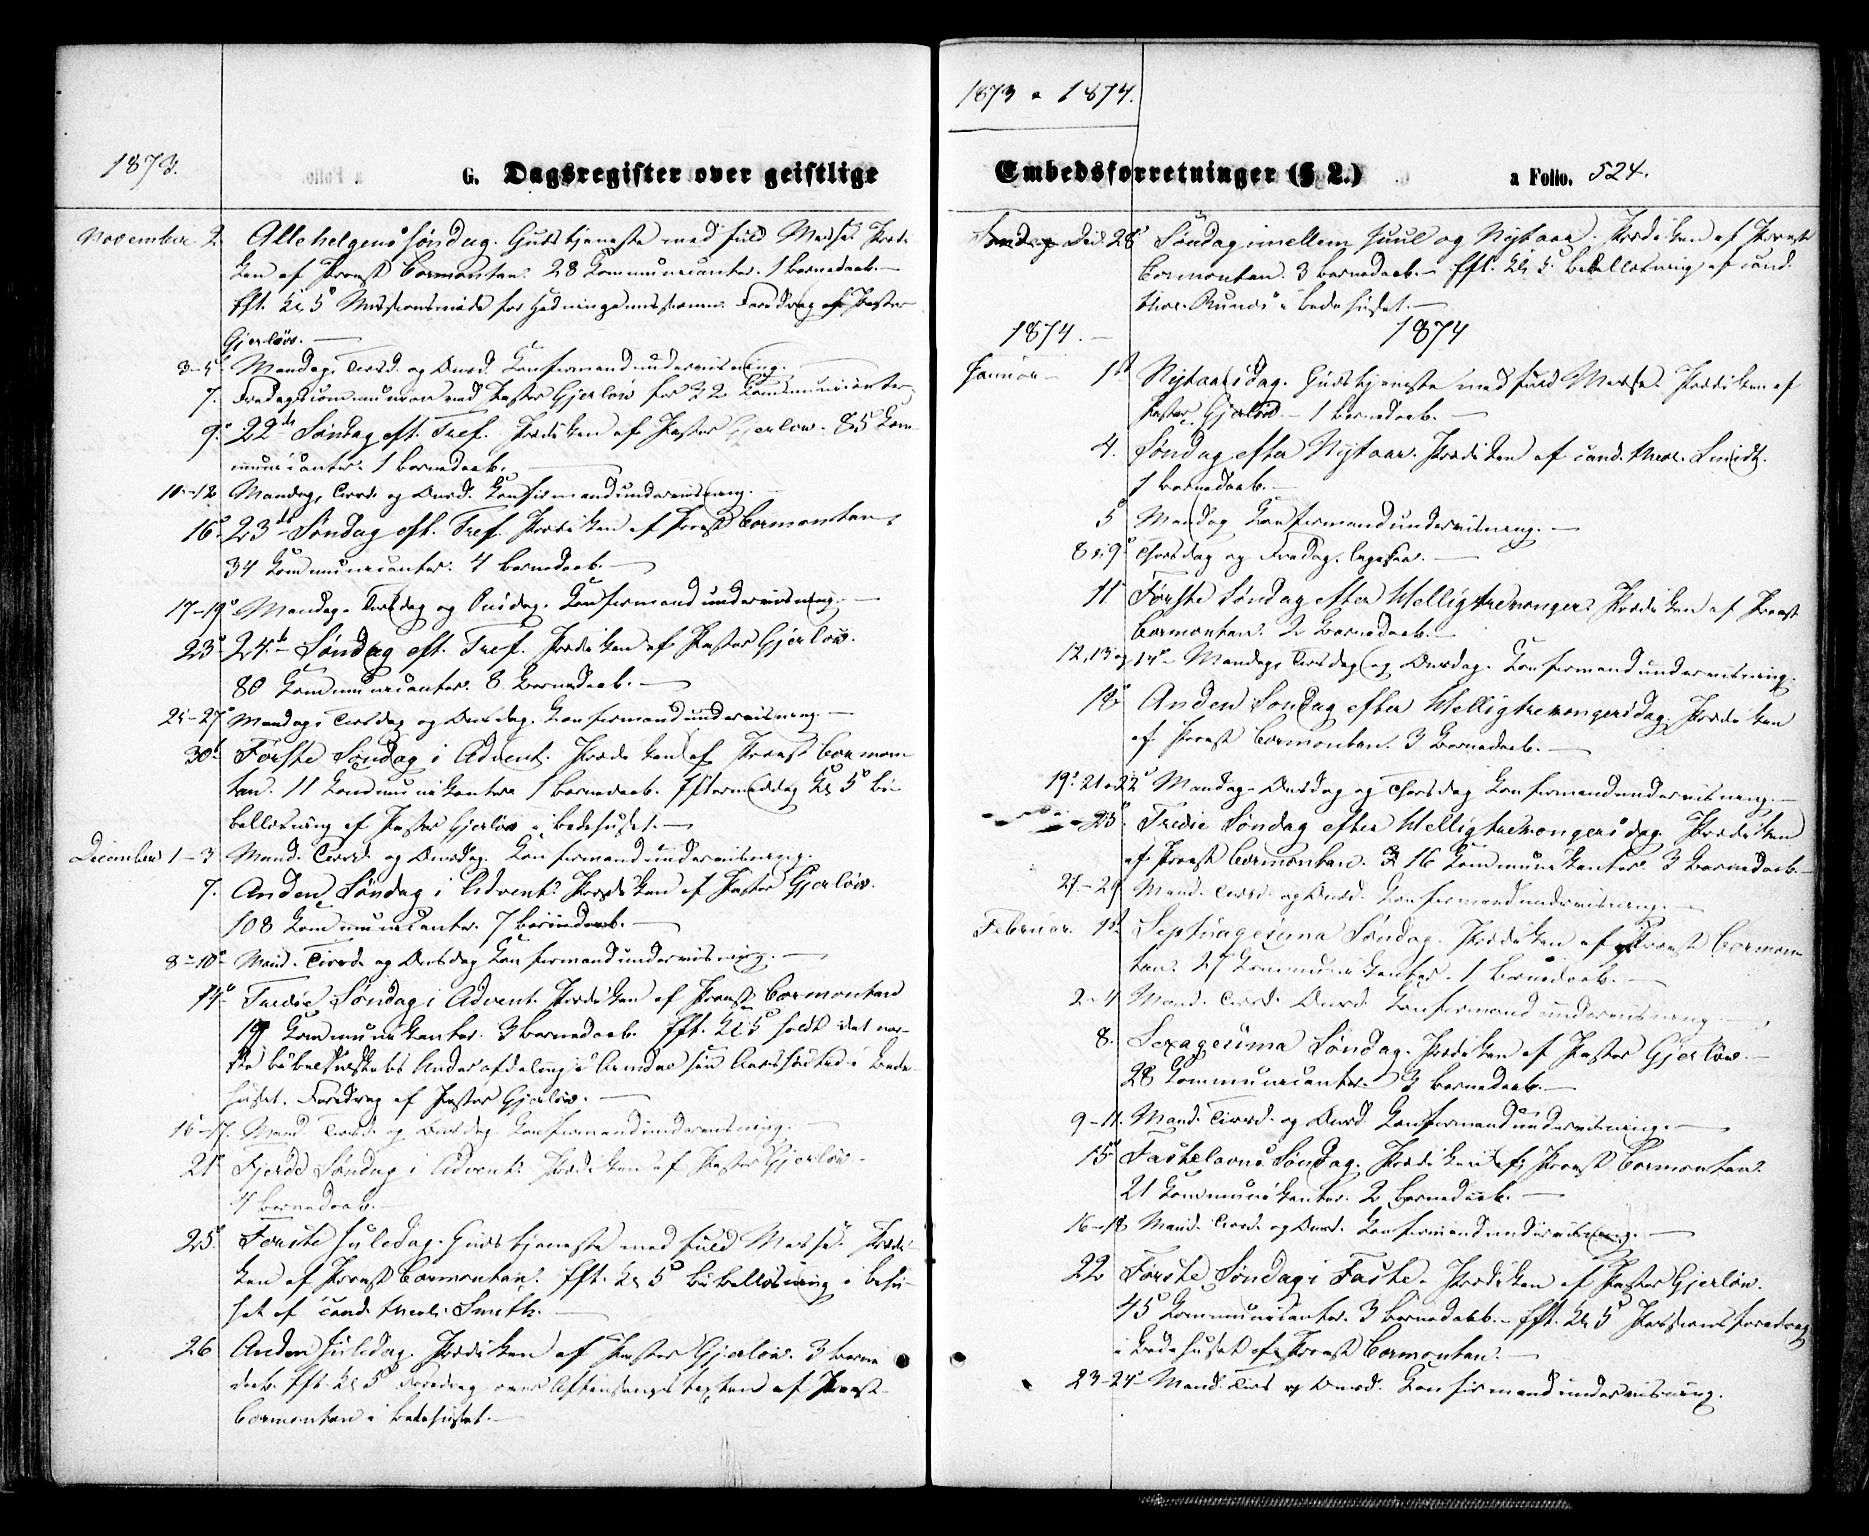 1873.
G. Dagsregister over geistlige
November 2. Allehelgens Søndag. Gudstjeneste med fuld Messe. Prædi-
ken af Provst Cormontan. 28 Communicanter. 1 Barnedaab. —
Eft. Kl 5 Missionsmøde for Hedningemissionen. Foredrag af Pastor
Gjerløw. —
3-5 Mandag, Tirsd. og Onsd. Konfirmandundervisning. —
7. Fredagscommunion ved Pastor Gjerløw for 32 Communicanter
9. 22de Søndag eft. Tref. Prædiken af Pastor Gjerløw. 85 Com-
municanter. 1 Barnedaab. —
10-12 Mandag, Tirsd. og Onsd. Konfirmandundervisning. —
16. 23de Søndag eft. Tref. Prædiken af Provst Cormontan,
34 Communicanter. 4 Barnedaab. —
17-19 Mandag. Tirsdag og Onsdag. Konfirmandundervisning. —
23. 24de Søndag eft. Tref. Prædiken af Pastor Gjerløw.
80 Communicanter. 8 Barnedaab. —
25-27 Mandag, Tirsdag og Onsdag. Konfirmandundervisning. —
30. Første Søndag i Advent. Prædiken af Provst Cormon-
tan. 11 Communikanter 1 Barnedaab. Eftermiddag Kl 5 Bi-
bellæsning af Pastor Gjerløw i Bedehuset. —
December 1-3 Mand. Tirsd. og Onsdag. Konfirmandundervisning.
7. Anden Søndag i Advent. Prædiken af Pastor Gjerløw.
108 Communicanter. 7 Barnedaab. —
8-10 Mand. Tirsd. og Onsdag Konfirmandundervisning. —
14. Tredie Søndag i Advent. Prædiken af Provst Cormontan
19 Communikanter. 3 Barnedaab. Eft. Kl 5 holdt det nor-
ske Bibelselskabs Underafdeling i Arendal sin Aarshøitid i Bede-
huset. Foredrag af Pastor Gjerløw. —
16-17. Mand. Tirsd. og Onsdag Konfirmandundervisning. —
21. Fjerde Søndag i Advent. Prædiken af Pastor Gjerløw. —
4 Barnedaab. —
25. Første Juledag. Gudstjeneste med fuld Messe. Prædi-
ken af Provst Cormontan. Eft. Kl 5 Bibellæsning i Behu-
set af cand. theol. Smith. —
26 Anden Juledag. Prædiken af Pastor Gjerløw. 3 Barne
daab. Eft. Kl 5 Foredrag over Aftensangsteksten af Provst
Cormontan i Bedehuset. —
1873 & 1874.
Embedsforretninger (§ 2.)
a Folio. 524.
Dec. 28 Søndag imellem Juul og Nytaar. Prædiken af Provst
Cormontan. 3 Barnedaab. — Eft. Kl 5 Bibellæsning af cand.
theol. i Bedehuset. —
1874. — 1874
Januar 1st Nytaarsdag. Gudstjeneste med fuld Messe. Prædiken af
Pastor Gjerløw. — 1 Barnedaab. —
4. Søndag efter Nytaar. Prædiken af cand. theol. Smidt.
1 Barnedaab. —
5 Mandag Konfirmandundervisning. —
8 & 9 Thorsdag og Fredag. —
11 Første Søndag efter Helligtrekonger. Prædiken af Provst
Cormontan. 2 Barnedaab. —
12, 13 og 14 Mandag, Tirsdag og Onsdag. Konfirmandundervisning.
18 Anden Søndag efter Helligtrekongersdag. Prædiken
af Provst Cormontan. 3 Barnedaab. —
19. 21 og 22 Mandag. Onsdag og Thorsdag Konfirmandundervisning. —
25. Tredie Søndag efter Helligtrekongersdag. Prædiken
af Provst Cormontan. 16 Communikanter 3 Barnedaab. —
27-29 Mand. Tirsd. og Onsd. Konfirmandundervisning. —
Februar. 1st Septuagesima Søndag. Prædiken af Provst Cormon-
tan. 27 Communikanter. 1 Barnedaab. —
2-4 Mand. Tirsd. Onsd. Konfirmandundervisning —
8. Sexagesima Søndag. Prædiken af Pastor Gjerløw. —
28 Communicanter. 3 Barnedaab. —
9-11. Mand. Tirsd. og Onsd Konfirmandundervisning. —
15 Fastelavns Søndag. Prædiken af Provst Cormontan.
21 Communikanter. 2 Barnedaab. —
16-18 Mand. Tirsd. og Onsd. Konfirmandundervisning. —
22 Første Søndag i Faste. Prædiken af Pastor Gjerløw.
45 Communicanter. 3 Barnedaab. — Eft. Kl 5 Passionsforedrag
i Bedehuset af Provst Cormontan. —
23-25 Mand. Tirs og Onsd. Konfirmandundervisning.